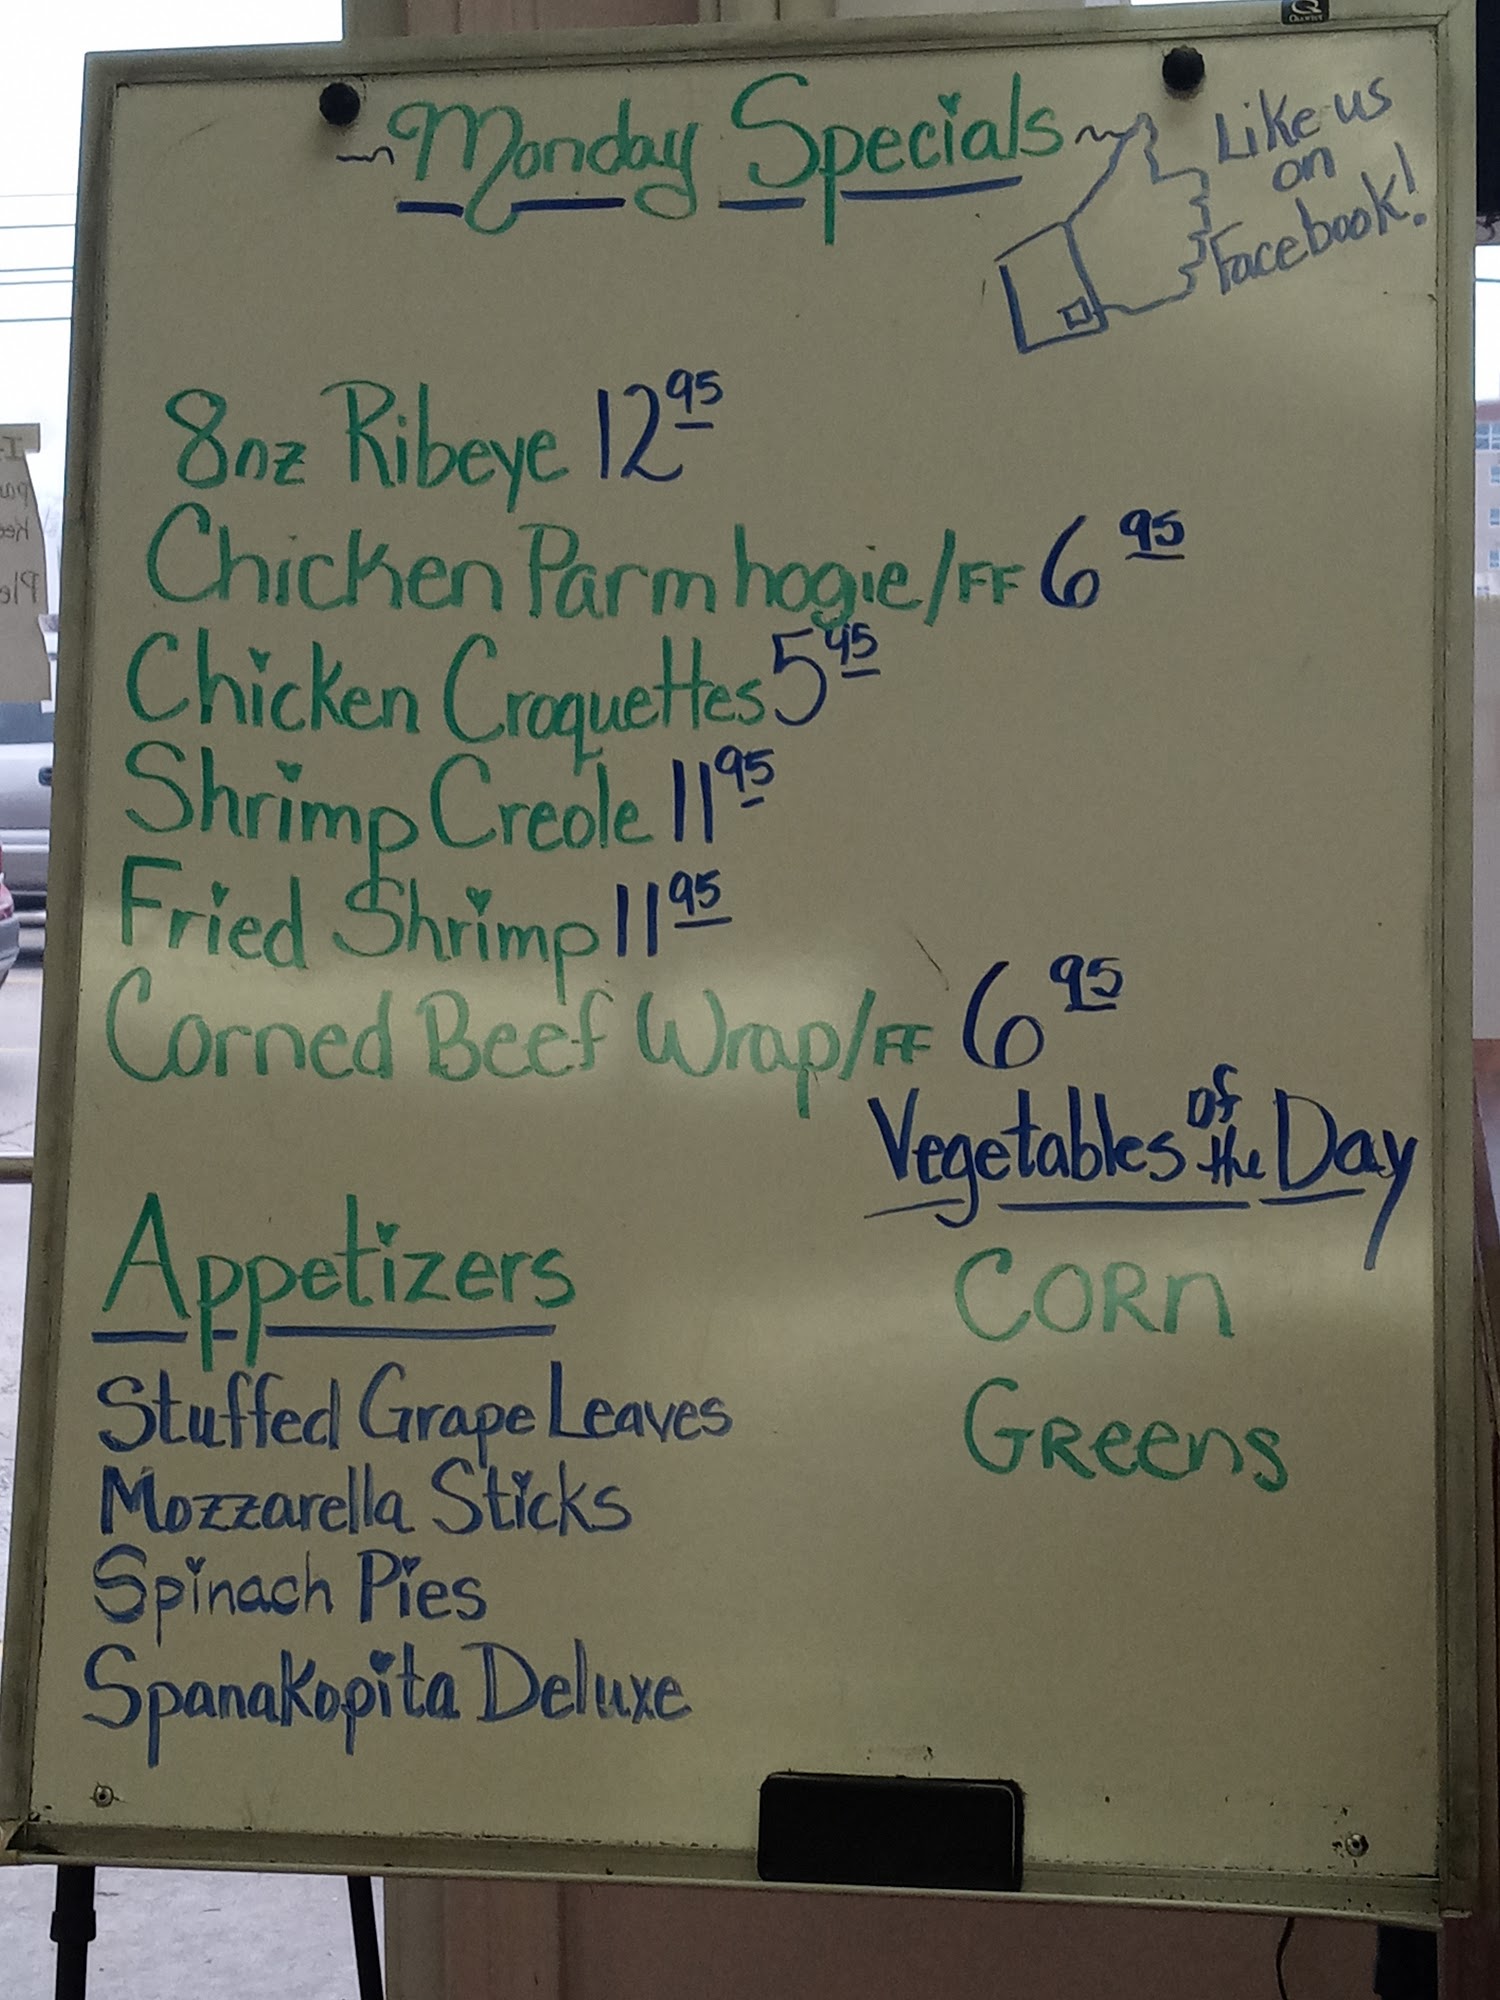 Monday Specials
Like us
on
Facebook!
8oz Ribeye 12 95
Chicken Parm hogie/FF 6 95
Chicken Croquettes 5 95
Shrimp Creole 11 95
Fried Shrimp 11 95
Corned Beef Wrap/FF 6 95
Vegetables of the Day
CORn
GReens
Appetizers
Stuffed Grape Leaves
Mozzarella Sticks
Spinach Pies
Spanakopita Deluxe
Quartet